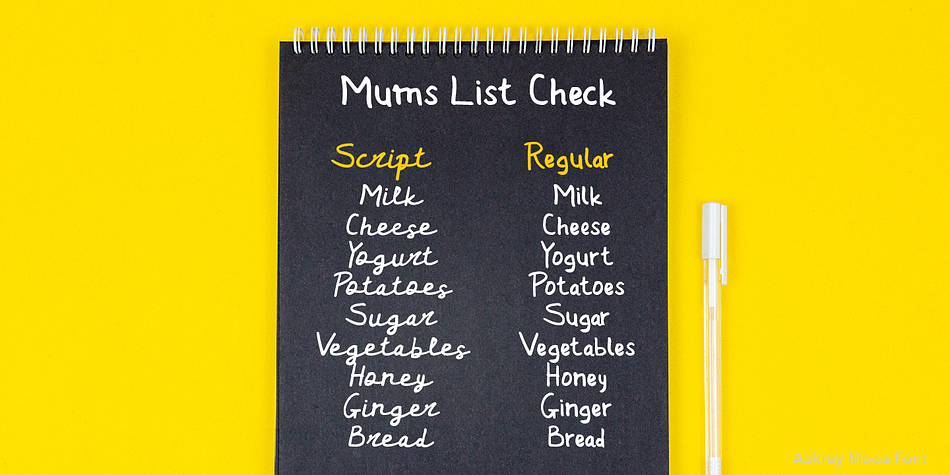 Mums List Check
Script
Milk
Cheese
Yogurt
Potatoes
Sugar
Vegetables
Honey
Ginger
Bread
Regular
Milk
Cheese
Yogurt
Potatoes
Sugar
Vegetables
Honey
Ginger
Bread
Font